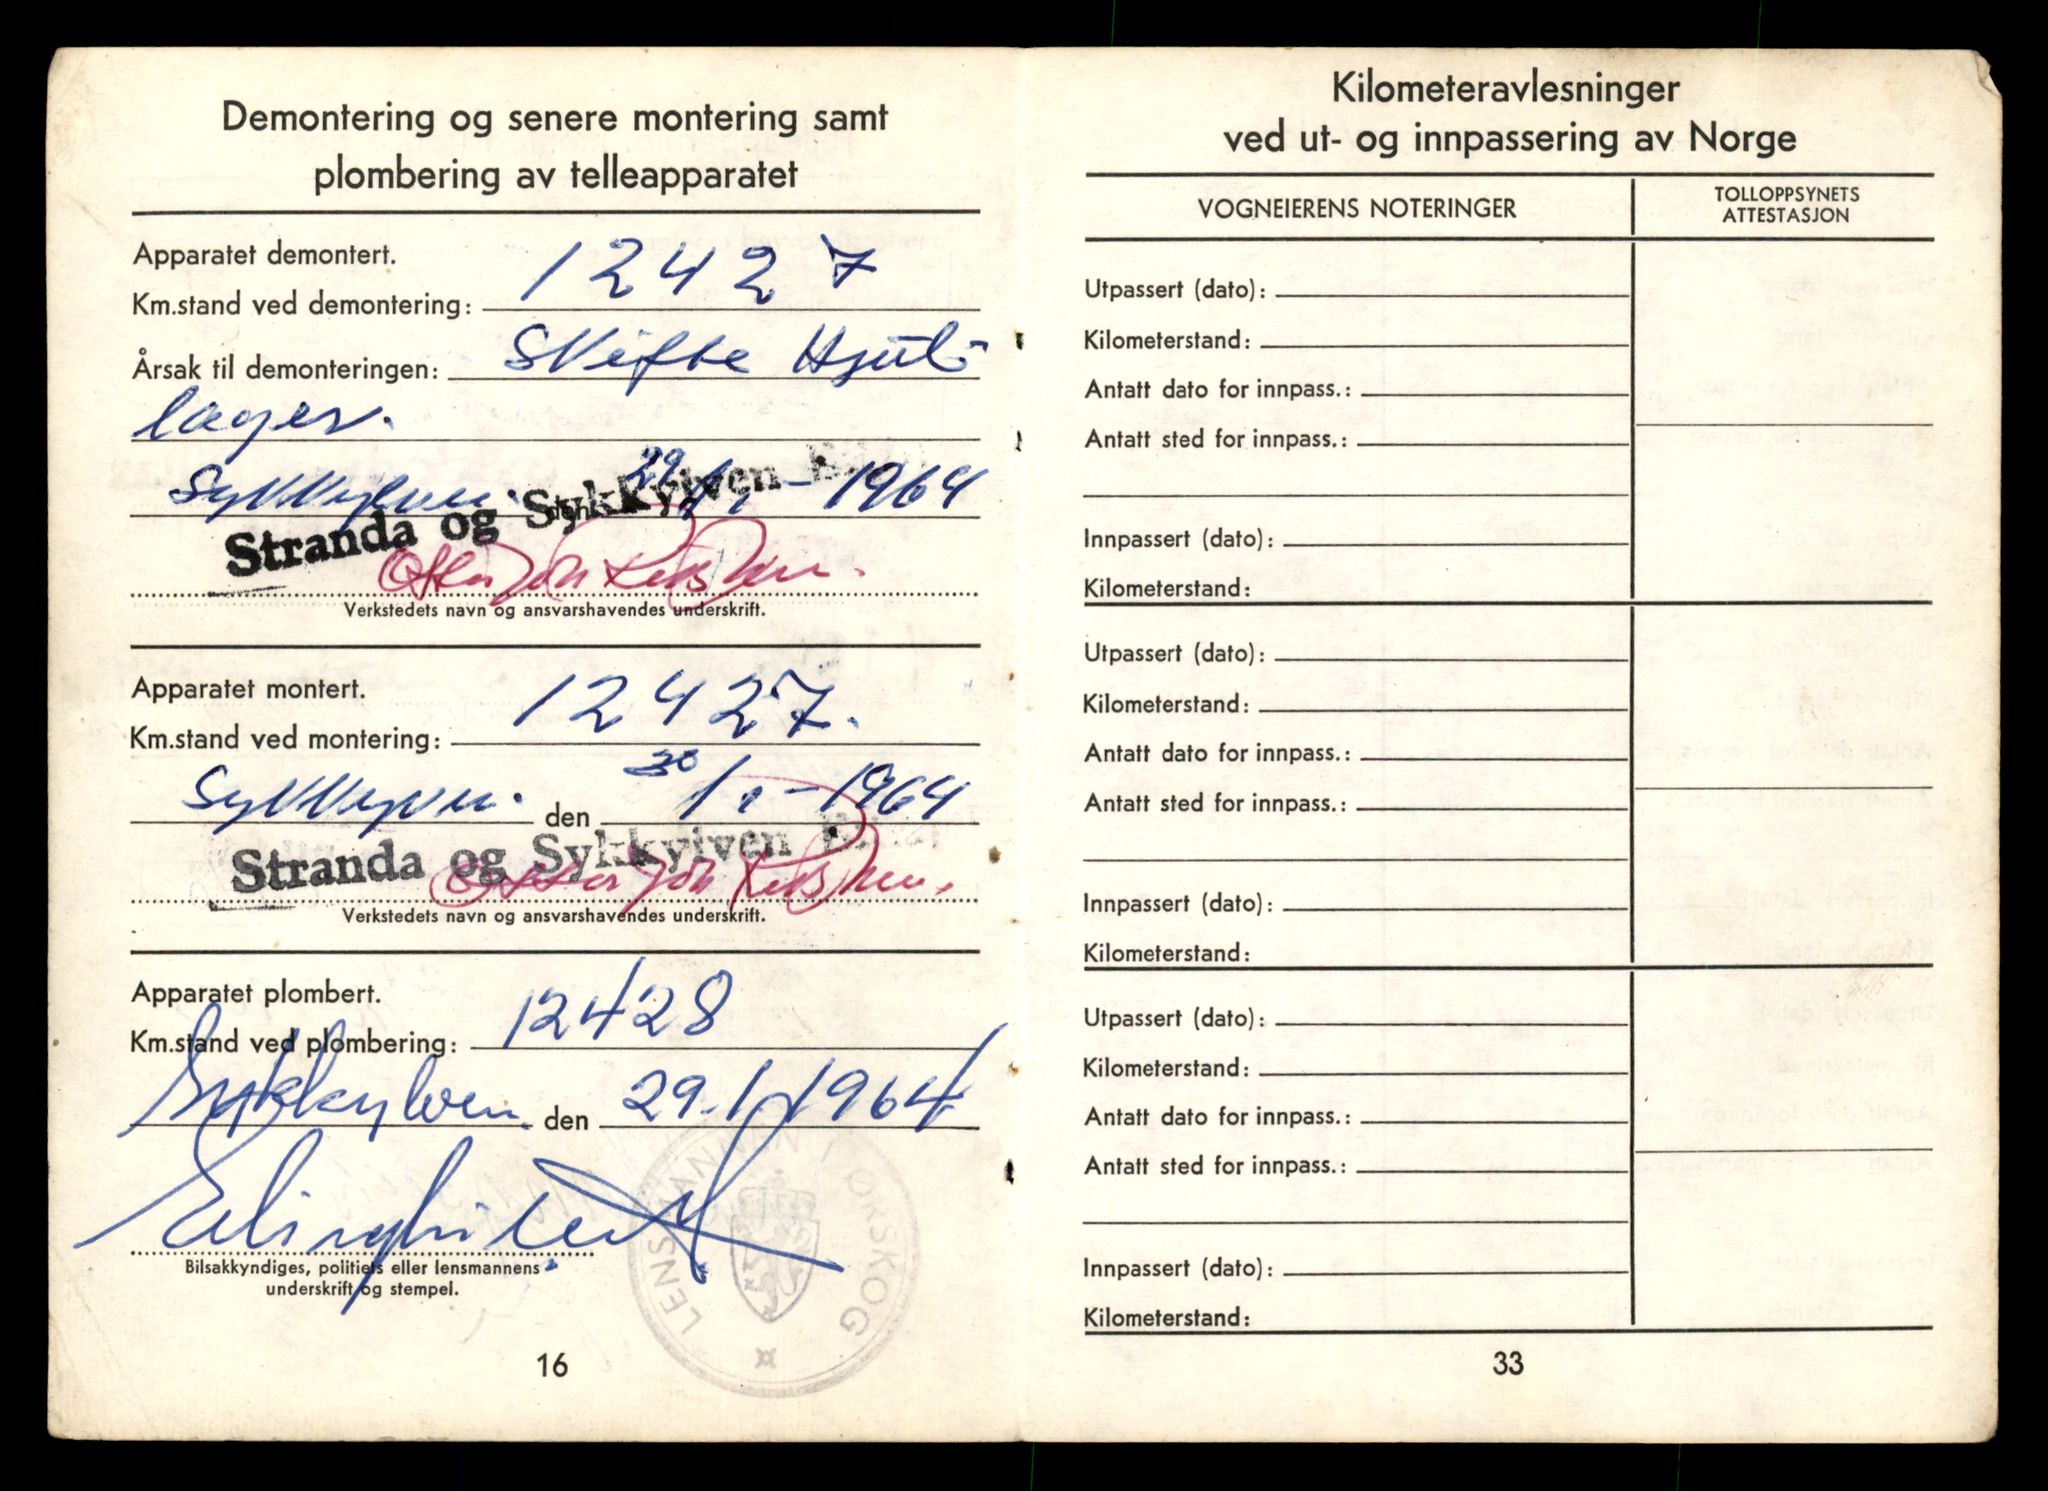 Demontering og senere montering samt
plombering av telleapparatet
Apparatet demontert.
Km.stand ved demontering: 12427
Årsak til demonteringen: Skifte Hjul-
lager.
Sykkylven. den 29/1 - 1964
Stranda og Sykkylven
Verkstedets navn og ansvarshavendes underskrift.
Apparatet montert.
Km.stand ved montering: 12427.
Sykkylven. den 30/1 - 1964
Stranda og Sykkylven
Verkstedets navn og ansvarshavendes underskrift.
Apparatet plombert.
Km.stand ved plombering: 12428
Sykkylven den 29.1. 1964
LENSMANNEN I ØRSKOG
Bilsakkyndiges, politiets eller lensmannens
underskrift og stempel.
16
Kilometeravlesninger
ved ut- og innpassering av Norge
VOGNEIERENS NOTERINGER
TOLLOPPSYNETS
ATTESTASJON
Utpassert (dato):
Kilometerstand:
Antatt dato for innpass.:
Antatt sted for innpass.:
Innpassert (dato):
Kilometerstand:
Utpassert (dato):
Kilometerstand:
Antatt dato for innpass.:
Antatt sted for innpass.:
Innpassert (dato):
Kilometerstand:
Utpassert (dato):
Kilometerstand:
Antatt dato for innpass.:
Antatt sted for innpass.:
Innpassert (dato):
Kilometerstand:
33